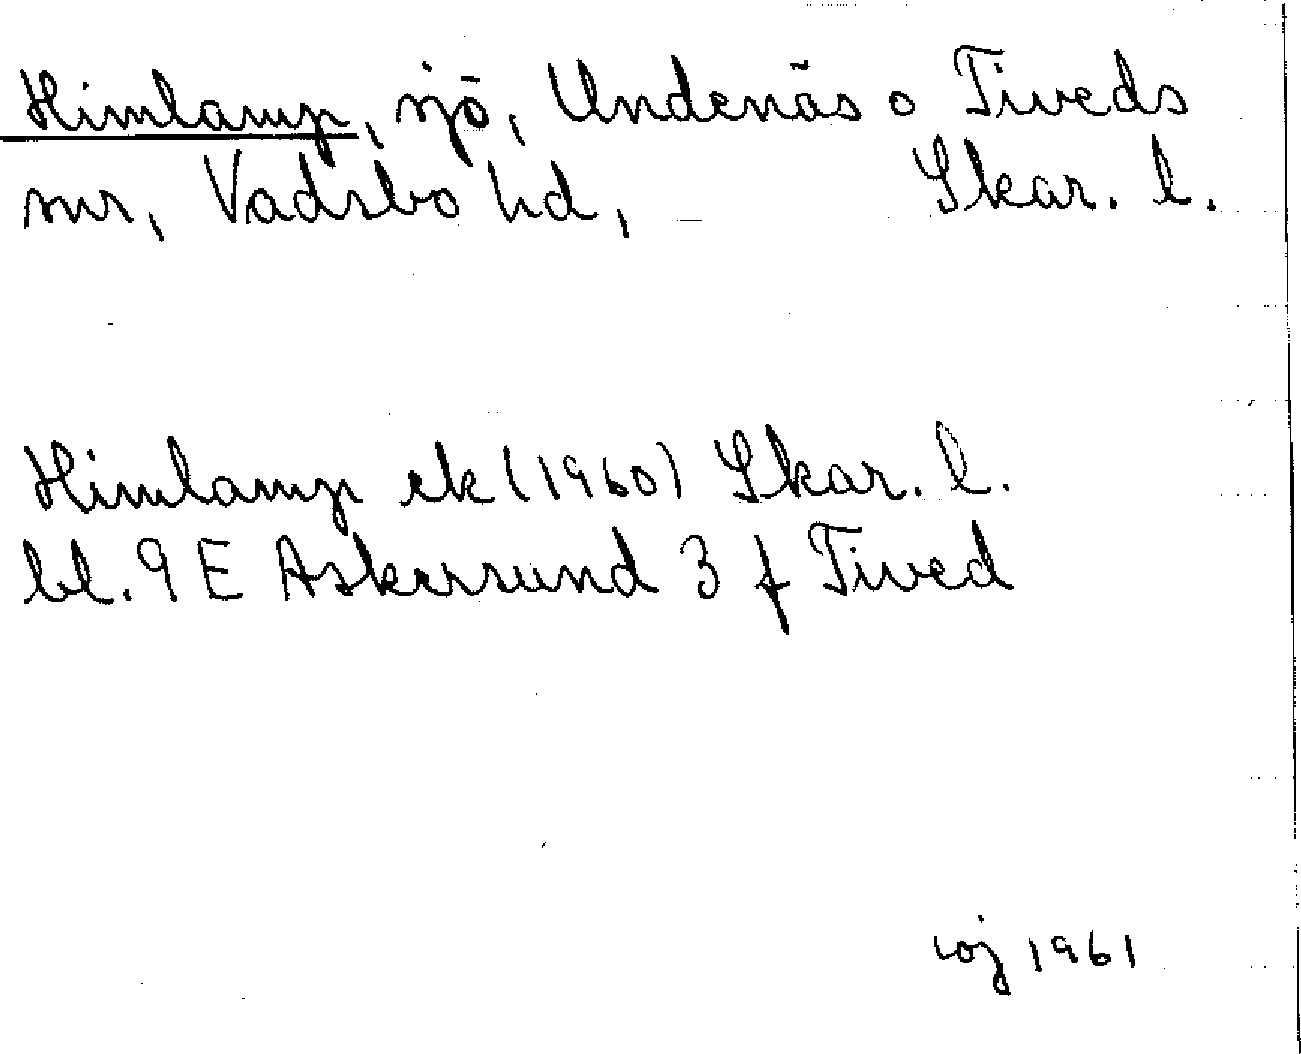 Himlamp, sjö, Undenäs o Tiveds
snr, Vadsbo hd, Skar. l.
Himlamp ek (1960) Skar. l.
bl. 9 E Askersund 3 f Tived
ioj 1961